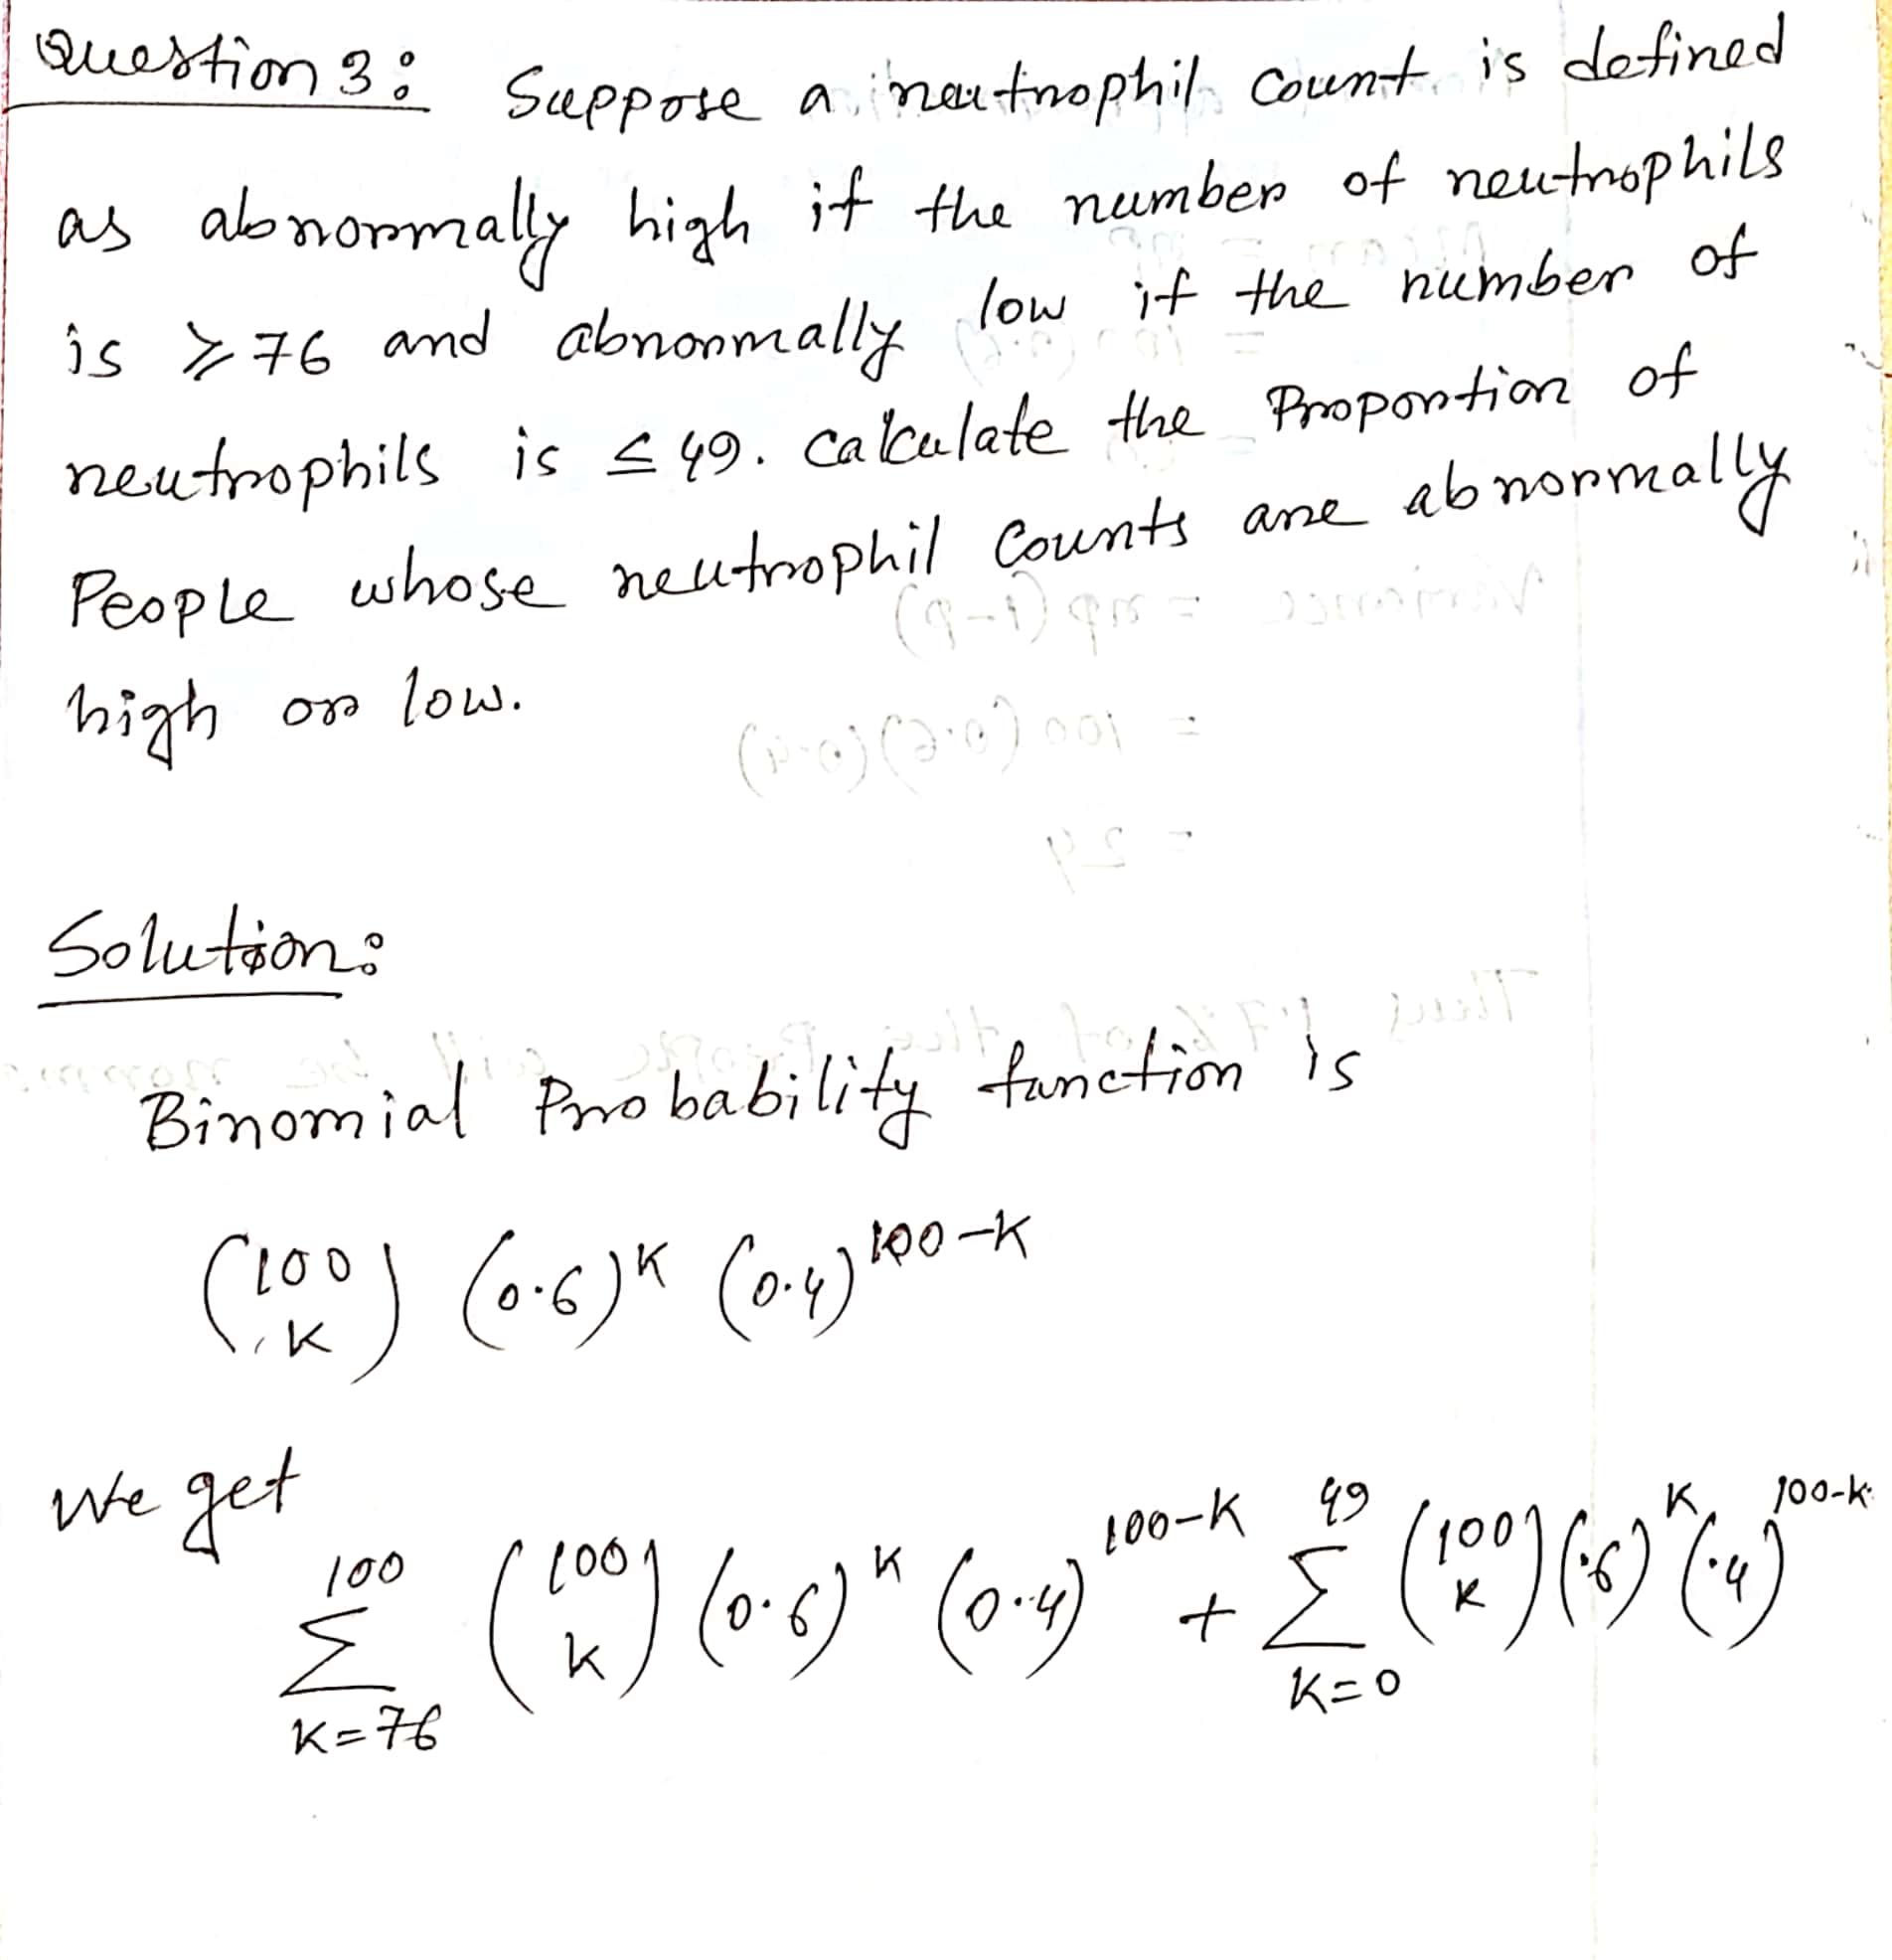 Question 3: Suppose a neutrophil count is defined
as abnormally high if the number of neutrophils
is ≥ 76 and abnormally low if the number of
neutrophils is ≤ 49. calculate the Proportion of
People whose neutrophil counts are abnormally
high or low.
Solution:
Binomial Probability function is
(100 K) (0.6)^K (0.4)^100-K
We get
100 Σ K=76 (100 K) (0.6)^K (0.4)^100-K + 49 Σ K=0 (100 K) (.6)^K (.4)^100-K